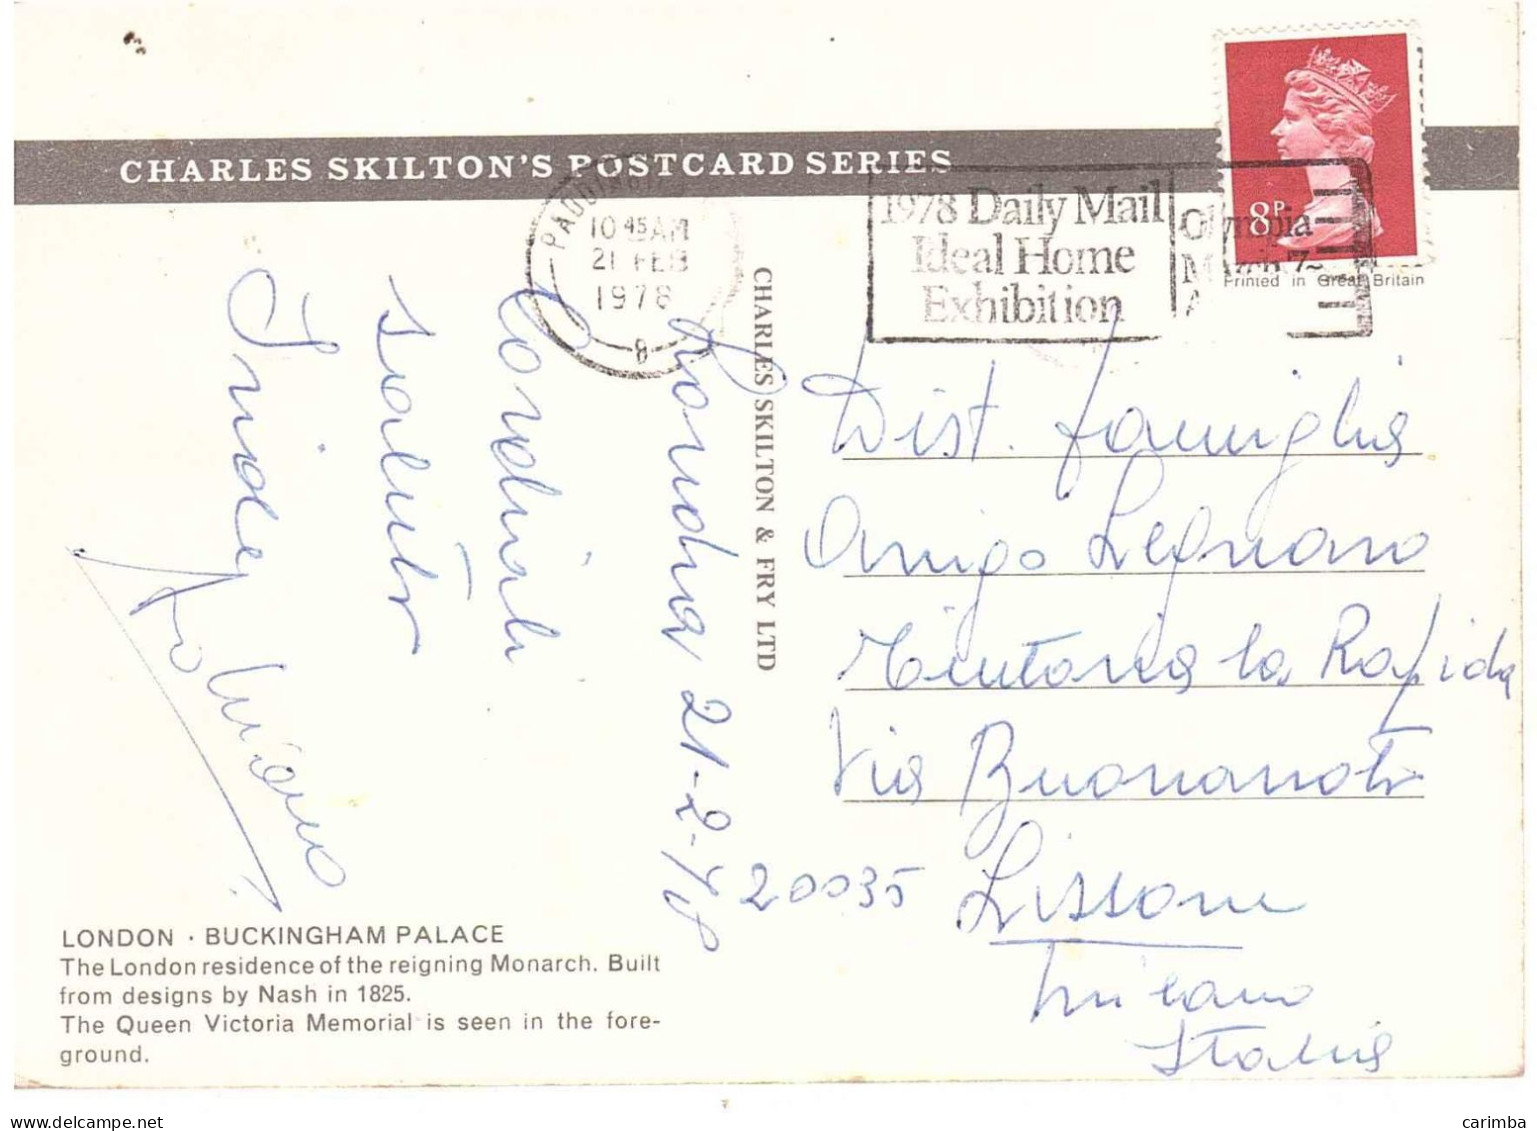 CHARLES SKILTON'S POSTCARD SERIES
PADDINGTON
10 45 AM
21 FEB
1978
8
1978 Daily Mail
Ideal Home
Exhibition
Olympia
8P
Printed in Great Britain
CHARLES SKILTON & FRY LTD
Londra 21-2-78
Cordiali
saluti
Dist. famiglia
Amigo Legnaro
Tintoria la Rapida
Via Buonarroti
20035 Lissone
Milano
Italia
LONDON · BUCKINGHAM PALACE
The London residence of the reigning Monarch. Built
from designs by Nash in 1825.
The Queen Victoria Memorial is seen in the fore-
ground.
delcampe.net
carimba